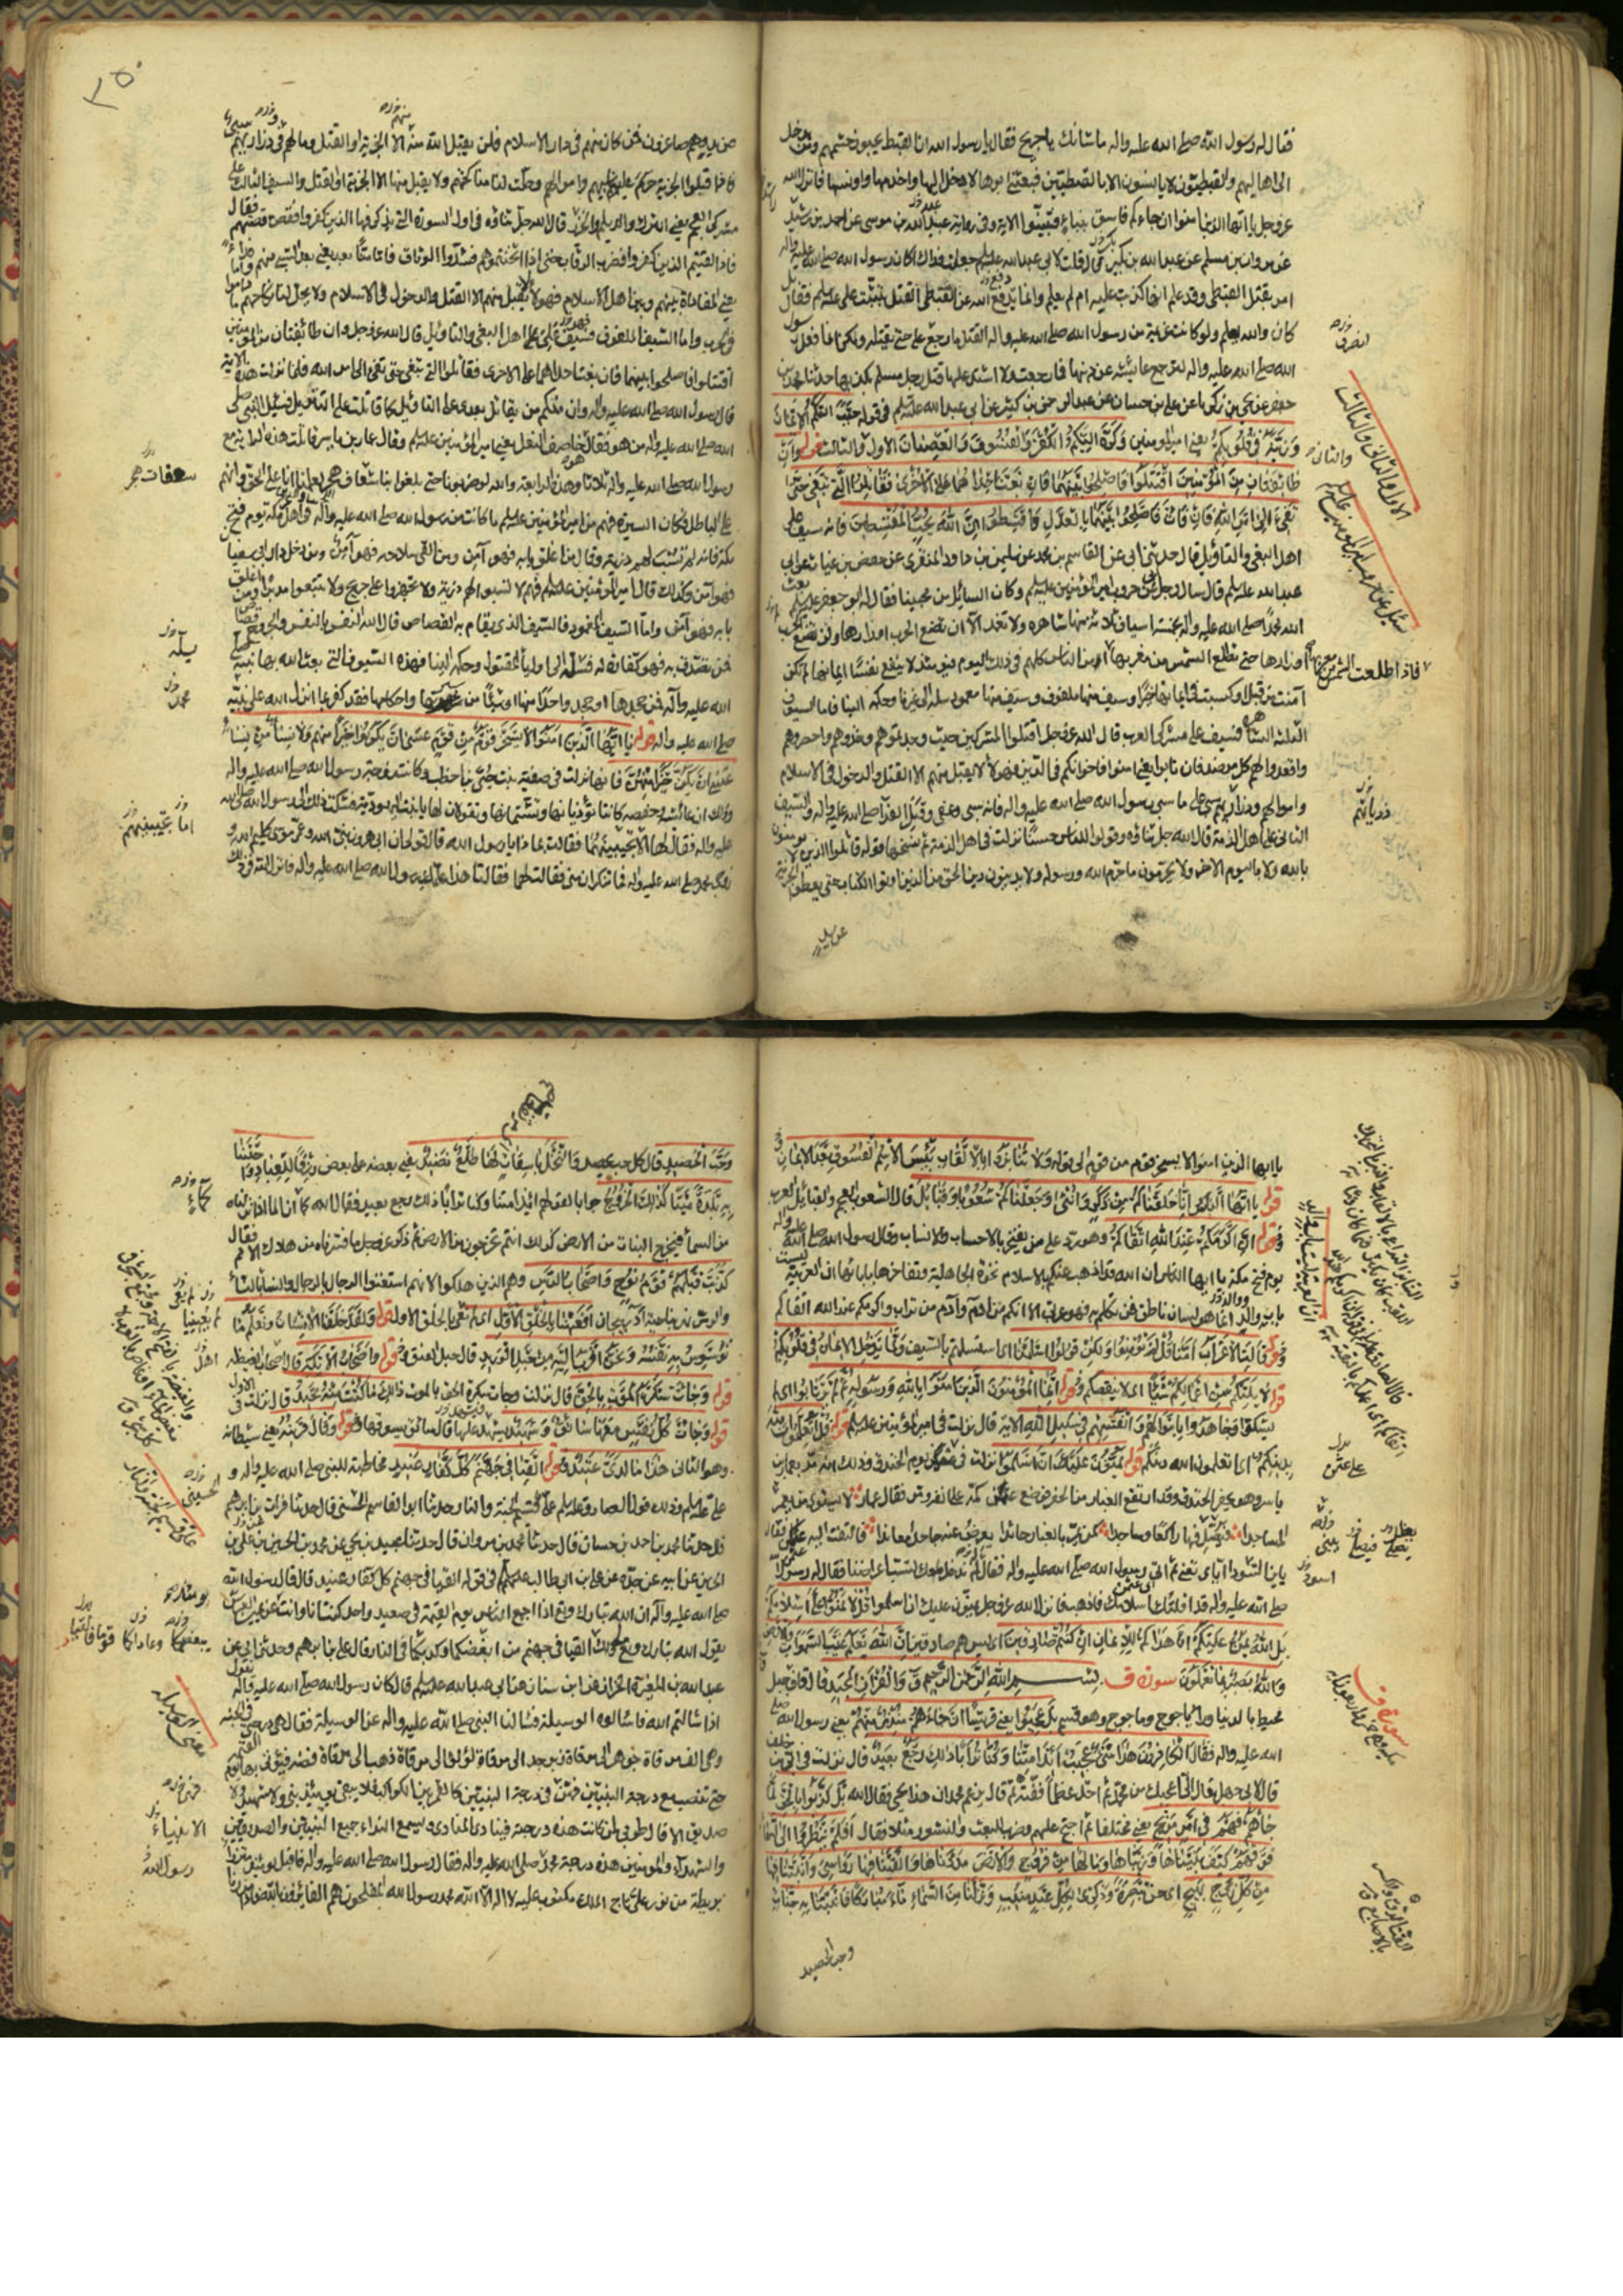 فقال له رسول الله صلى الله عليه واله ما شانك يا جريح فقال يا رسول الله ان القبط يحبون حشمهم ومن يدخل
الى اهاليهم والقبطيون لا يانسون الا بالقبطيين فبعثني ابوها لادخل اليها واخدمها واونسها فانزل الله
عز وجل يا ايها الذين امنوا ان جاءكم فاسق بنباء فتبينوا الاية وفي رواية عبيد الله بن موسى عن احمد بن رشيد
عن مروان بن مسلم عن عبد الله بن بكير قال قلت لابي عبد الله عليه السلم جعلت فداك كان رسول الله صلى الله عليه واله
امر بقتل القبطي وقد علم انها كذبت عليه ام لم يعلم وانما دفع الله عن القبطي القتل بتثبت علي عليه السلم فقال بل
كان والله يعلم ولو كانت عزيمة من رسول الله صلى الله عليه واله القتل ما رجع علي حتى يقتله ولكن انما فعل رسول
الله صلى الله عليه واله لترجع عايشه عن ذنبها فما رجعت ولا اشتد عليها قتل رجل مسلم بكذبها حدثنا محمد بن
جعفر عن يحيى بن زكريا عن علي بن حسان عن عبد الرحمن بن كثير عن ابي عبد الله عليه السلم في قوله حبب اليكم الايمان
وزينه في قلوبكم يعني امير المومنين وكره اليكم الكفر والفسوق والعصيان الاول والثالث قوله وان
طائفتان من المؤمنين اقتتلوا فاصلحوا بينهما فان بغت احداهما على الاخرى فقاتلوا التي تبغي حتى
تفيء الى امر الله فان فاءت فاصلحوا بينهما بالعدل واقسطوا ان الله يحب المقسطين فانه سيف على
اهل البغي والتاويل قال حدثني ابي عن القاسم بن محمد عن سليمن بن داود المنقري عن حفص بن غياث عن ابي
عبد الله عليه السلم قال سال رجل عن حروب امير المؤمنين عليه السلم وكان السائل من محبينا فقال له ابو جعفر عليه السلم بعث
الله محمدا صلى الله عليه واله بخمسة اسياف ثلاثة منها شاهره ولا تغمد الا ان تضع الحرب اوزارها ولن تضع الحرب
اوزارها حتى تطلع الشمس من مغربها امن الناس كلهم في ذلك اليوم فيومئذ لا ينفع نفسا ايمانها لم تكن
امنت من قبل او كسبت في ايمانها خيرا وسيف منها ملفوف وسيف منها مغمود سله الى غيرنا وحكمه الينا فاما السيوف
الثلثة الشاهره فسيف على مشركي العرب قال الله عز وجل اقتلوا المشركين حيث وجدتموهم وخذوهم واحصروهم
واقعدوا لهم كل مرصد فان تابوا يعني امنوا فاخوانكم في الدين فهؤلاء لا يقبل منهم الا القتل والدخول في الاسلام
واموالهم وذراريهم سبي على ما سبى رسول الله صلى الله عليه واله فانه سبى وعفى وقبل الفداء صلى الله عليه واله والسيف
الثاني على اهل الذمة قال الله جل ثناؤه وقولوا للناس حسنا نزلت في اهل الذمة ثم نسخها قوله قاتلوا الذين لا يومنون
بالله ولا باليوم الاخر ولا يحرمون ما حرم الله ورسوله ولا يدينون دين الحق من الذين اوتوا الكتاب حتى يعطوا الجزية
عن يد
فاذا اطلعت الشمس من مغربها
عن يد وهم صاغرون فمن كان منهم في دار الاسلام فلن يقبل الله منه الا الجزية او القتل وما لهم في وذراريهم سبي
فاذا قبلوا الجزية حرم علينا سبيهم واموالهم وحلت لنا مناكحتهم ولا يقبل منها الا الجزية او القتل والسيف الثالث على
مشركي العجم يعني الترك والديلم والخزر قال الله جل ثناؤه في اول السورة التي يذكر فيها الذين كفروا فقص قصتهم فقال
فاذا لقيتم الذين كفروا فضرب الرقاب حتى اذا اثخنتموهم فشدوا الوثاق فاما منا بعد يعني بعد السبي منهم واما فداء
يعني المفاداة بينهم وبين اهل الاسلام فهولاء لا يقبل منهم الا القتل والدخول في الاسلام ولا يحل لنا نكاحهم ما داموا
في الحرب واما السيف الملفوف فسيف على اهل البغي والتاويل قال الله عز وجل وان طائفتان من المومنين
اقتتلوا فاصلحوا بينهما فان بغت احداهما على الاخرى فقاتلوا التي تبغي حتى تفيء الى امر الله فلما نزلت هذه الاية
قال رسول الله صلى الله عليه واله وان منكم من يقاتل بعدي على التاويل كما قاتلت على التنزيل فسئل النبي صلى
الله عليه واله من هو فقال خاصف النعل يعني امير المؤمنين عليه السلم وقال عمار بن ياسر قاتلت هذه الراية مع
رسول الله صلى الله عليه واله ثلاثا وهذه الرابعة والله لو ضربونا حتى يبلغوا بنا شعاف هجر لعلمنا انا على الحق وانهم
على الباطل فكان السيرة فيهم من امير المؤمنين عليه السلم ما كانت من رسول الله صلى الله عليه واله في اهل مكة يوم فتح
مكة فانه لم يسب لهم ذرية وقال من اغلق بابه فهو آمن ومن القى سلاحه فهو آمن ومن دخل دار ابي سفيان
فهو آمن وكذلك قال امير المؤمنين عليه السلم فيهم لا تسبوا لهم ذرية ولا تجهزوا على جريح ولا تتبعوا مدبرا ومن اغلق
بابه فهو آمن واما السيف المغمود فالسيف الذي يقام به القصاص قال الله النفس بالنفس والجروح قصاص
فمن تصدق به فهو كفارة له فسله الى اولياء المقتول وحكمه الينا فهذه السيوف التي بعث الله بها نبيه
الله عليه واله فمن جحدها او جحد واحدا منها او شيئا من سيرها واحكامها فقد كفر بما انزل الله على نبيه
صلى الله عليه واله قوله يا ايها الذين امنوا لا يسخر قوم من قوم عسى ان يكونوا خيرا منهم ولا نساء من نساء
عسى ان يكن خيرا منهن فانها نزلت في صفية بنت حيي بن اخطب وكانت زوجة رسول الله صلى الله عليه واله
وذلك ان عائشه وحفصه كانتا تؤذيانها وتشتمانها وتقولان لها يا بنت اليهودية فشكت ذلك الى رسول الله صلى الله
عليه واله فقال لها الا تجيبينهما فقالت بماذا يا رسول الله قال قولي ان ابي هرون نبي الله وعمي موسى كليم الله و
زوجي محمد صلى الله عليه واله فما تنكران مني فقالت لهما فقالتا هذا علمك رسول الله صلى الله عليه واله فانزل الله في ذلك
يا ايها الذين امنوا لا يسخر قوم من قوم الى قوله ولا تنابزوا بالالقاب بئس الاسم الفسوق بعد الايمان
قوله يا ايها الناس انا خلقناكم من ذكر وانثى وجعلناكم شعوبا وقبائل قال الشعوب العجم والقبائل العرب
وقوله ان اكرمكم عند الله اتقاكم وهو رد على من يفتخر بالاحساب والانساب وقال رسول الله صلى الله عليه واله
يوم فتح مكة يا ايها الناس ان الله قد اذهب عنكم بالاسلام نخوة الجاهلية وتفاخرها بابائها ان العربية ليست
باب ووالد انما هو لسان ناطق فمن تكلم به فهو عربي الا انكم من ادم وآدم من تراب واكرمكم عند الله اتقاكم
وقوله قالت الاعراب امنا قل لم تومنوا ولكن قولوا اسلمنا اي استسلمتم بالسيف ولما يدخل الايمان في قلوبكم
قوله لا يلتكم من اعمالكم شيئا اي لا ينقصكم وقوله انما المؤمنون الذين امنوا بالله ورسوله ثم لم يرتابوا اي لم
يشكوا وجاهدوا باموالهم وانفسهم في سبيل الله الاية قال نزلت في امير المؤمنين عليه السلم قوله قل اتعلمون الله
بدينكم اي اتعلمون الله دينكم قوله يمنون عليك ان اسلموا نزلت في عثمن يوم الخندق وذلك انه مر بعمار بن
ياسر وهو يحفر الخندق وقد ارتفع الغبار من الحفر فوضع عثمن كمه على انفه ومر فقال عمار لا يستوي من يعمر
المساجدا فيصلي فيها راكعا وساجدا كمن يمر بالغبار حائدا يعرض عنه جاحدا معاندا فالتفت اليه عثمن فقال
يابن السوداء اياي تعني ثم اتى رسول الله صلى الله عليه واله فقال له لم ندخل معك لتسب اعراضنا فقال له رسول الله
صلى الله عليه واله قد اقلتك اسلامك فاذهب فانزل الله عز وجل يمنون عليك ان اسلموا قل لا تمنوا على اسلامكم
بل الله يمن عليكم ان هداكم للايمان ان كنتم صادقين اي ليس هم صادقين ان الله يعلم غيب السموات والارض
والله بصير بما تعملون سورة ق بسم الله الرحمن الرحيم ق والقران المجيد قال ق جبل
محيط بالدنيا وراء ياجوج وماجوج وهو قسم بل عجبوا يعني قريشا ان جاءهم منذر منهم يعني رسول الله صلى
الله عليه واله فقال الكافرون هذا شيء عجيب ءاذا متنا وكنا ترابا ذلك رجع بعيد قال نزلت في ابي بن خلف
قال لابي جهل تعال الي لاعجبك من محمد ثم اخذ عظما ففته ثم قال يزعم محمد ان هذا يحيى فقال الله بل كذبوا بالحق لما
جاءهم فهم في امر مريج يعني مختلف ثم احتج عليهم وضرب للبعث والنشور مثلا فقال افلم ينظروا الى السماء
فوقهم كيف بنيناها وزيناها وما لها من فروج والارض مددناها والقينا فيها رواسي وانبتنا فيها
من كل زوج بهيج اي حسن تبصرة وذكرى لكل عبد منيب ونزلنا من السماء ماء مباركا فانبتنا به جنات
وحب الحصيد
سورة ق
وحب الحصيد قال كل حب يحصد والنخل باسقات لها طلع نضيد يعني بعضه على بعض رزقا للعباد واحيينا
به بلدة ميتا كذلك الخروج جوابا لقولهم ائذا متنا وكنا ترابا ذلك رجع بعيد فقال الله كما ان الماء اذا انزلناه
من السماء فيخرج النبات من الارض كذلك انتم تخرجون من الارض ثم ذكر عز وجل ما فسرناه من هلاك الامم فقال
كذبت قبلهم قوم نوح واصحاب الرس وهم الذين هلكوا لانهم استغنوا الرجال بالرجال والنساء بالنساء
والرس نهر بناحية آذربيجان افعيينا بالخلق الاول اي لم نعي بالخلق الاول قوله ولقد خلقنا الانسان ونعلم ما
توسوس به نفسه ونحن اقرب اليه من حبل الوريد قال حبل العنق وقوله واصحاب الايكة قال اصحاب الغيضه
قوله وجاءت سكرة الموت بالحق قال نزلت وجاءت سكرة الحق بالموت ذلك ما كنت منه تحيد قال نزلت في الاول
قوله وجاءت كل نفس معها سائق وشهيد يشهد عليها قال سائق يسوقها وقوله وقال قرينه يعني شيطانه
وهو الثاني هذا ما لدي عتيد قوله القيا في جهنم كل كفار عنيد مخاطبة للنبي صلى الله عليه واله و
علي عليه السلم وذلك قول الصادق عليه السلم علي قسيم الجنة والنار حدثنا ابو القاسم الحسني قال حدثنا فرات بن ابراهيم
قال حدثنا محمد بن احمد بن حسان قال حدثنا محمد بن مروان قال حدثنا عبيد بن يحيى عن محمد بن الحسين بن علي بن
الحسين عن ابيه عن جده عن علي بن ابي طالب عليه السلم في قوله القيا في جهنم كل كفار عنيد قال قال رسول الله
صلى الله عليه واله ان الله تبارك وتعالى اذا جمع الناس يوم القيمة في صعيد واحد كنت انا وانت عن يمين العرش
يقول الله تبارك وتعالى لي ولك القيا في جهنم من ابغضكما وكذبكما في النار قال علي بن ابراهيم وحدثني ابي عن
عبد الله بن المغيرة الخزاز عن ابن سنان عن ابي عبد الله عليه السلم قال كان رسول الله صلى الله عليه واله يقول
اذا سالتم الله فاسالوه الوسيلة فسالنا النبي صلى الله عليه واله عن الوسيلة فقال هي درجتي في الجنة
وهي الف مرقاة جوهر الى مرقاة زبرجد الى مرقاة لؤلؤ الى مرقاة ذهب الى مرقاة فضة فيؤتى بها يوم القيمة
حتى تنصب مع درجة النبيين فهي في درجة النبيين كالقمر بين الكواكب فلا يبقى يومئذ نبي ولا شهيد ولا
صديق الا قال طوبى لمن كانت هذه درجته فينادي المنادي ويسمع النداء جميع النبيين والصديقين
والشهداء والمومنين هذه درجة محمد صلى الله عليه واله فقال رسول الله صلى الله عليه واله فاقبل يومئذ متزرا
بريطة من نور على تاج الملك مكتوب عليه لا اله الا الله محمد رسول الله المفلحون هم الفائزون بالله
الانبياء
رسول الله